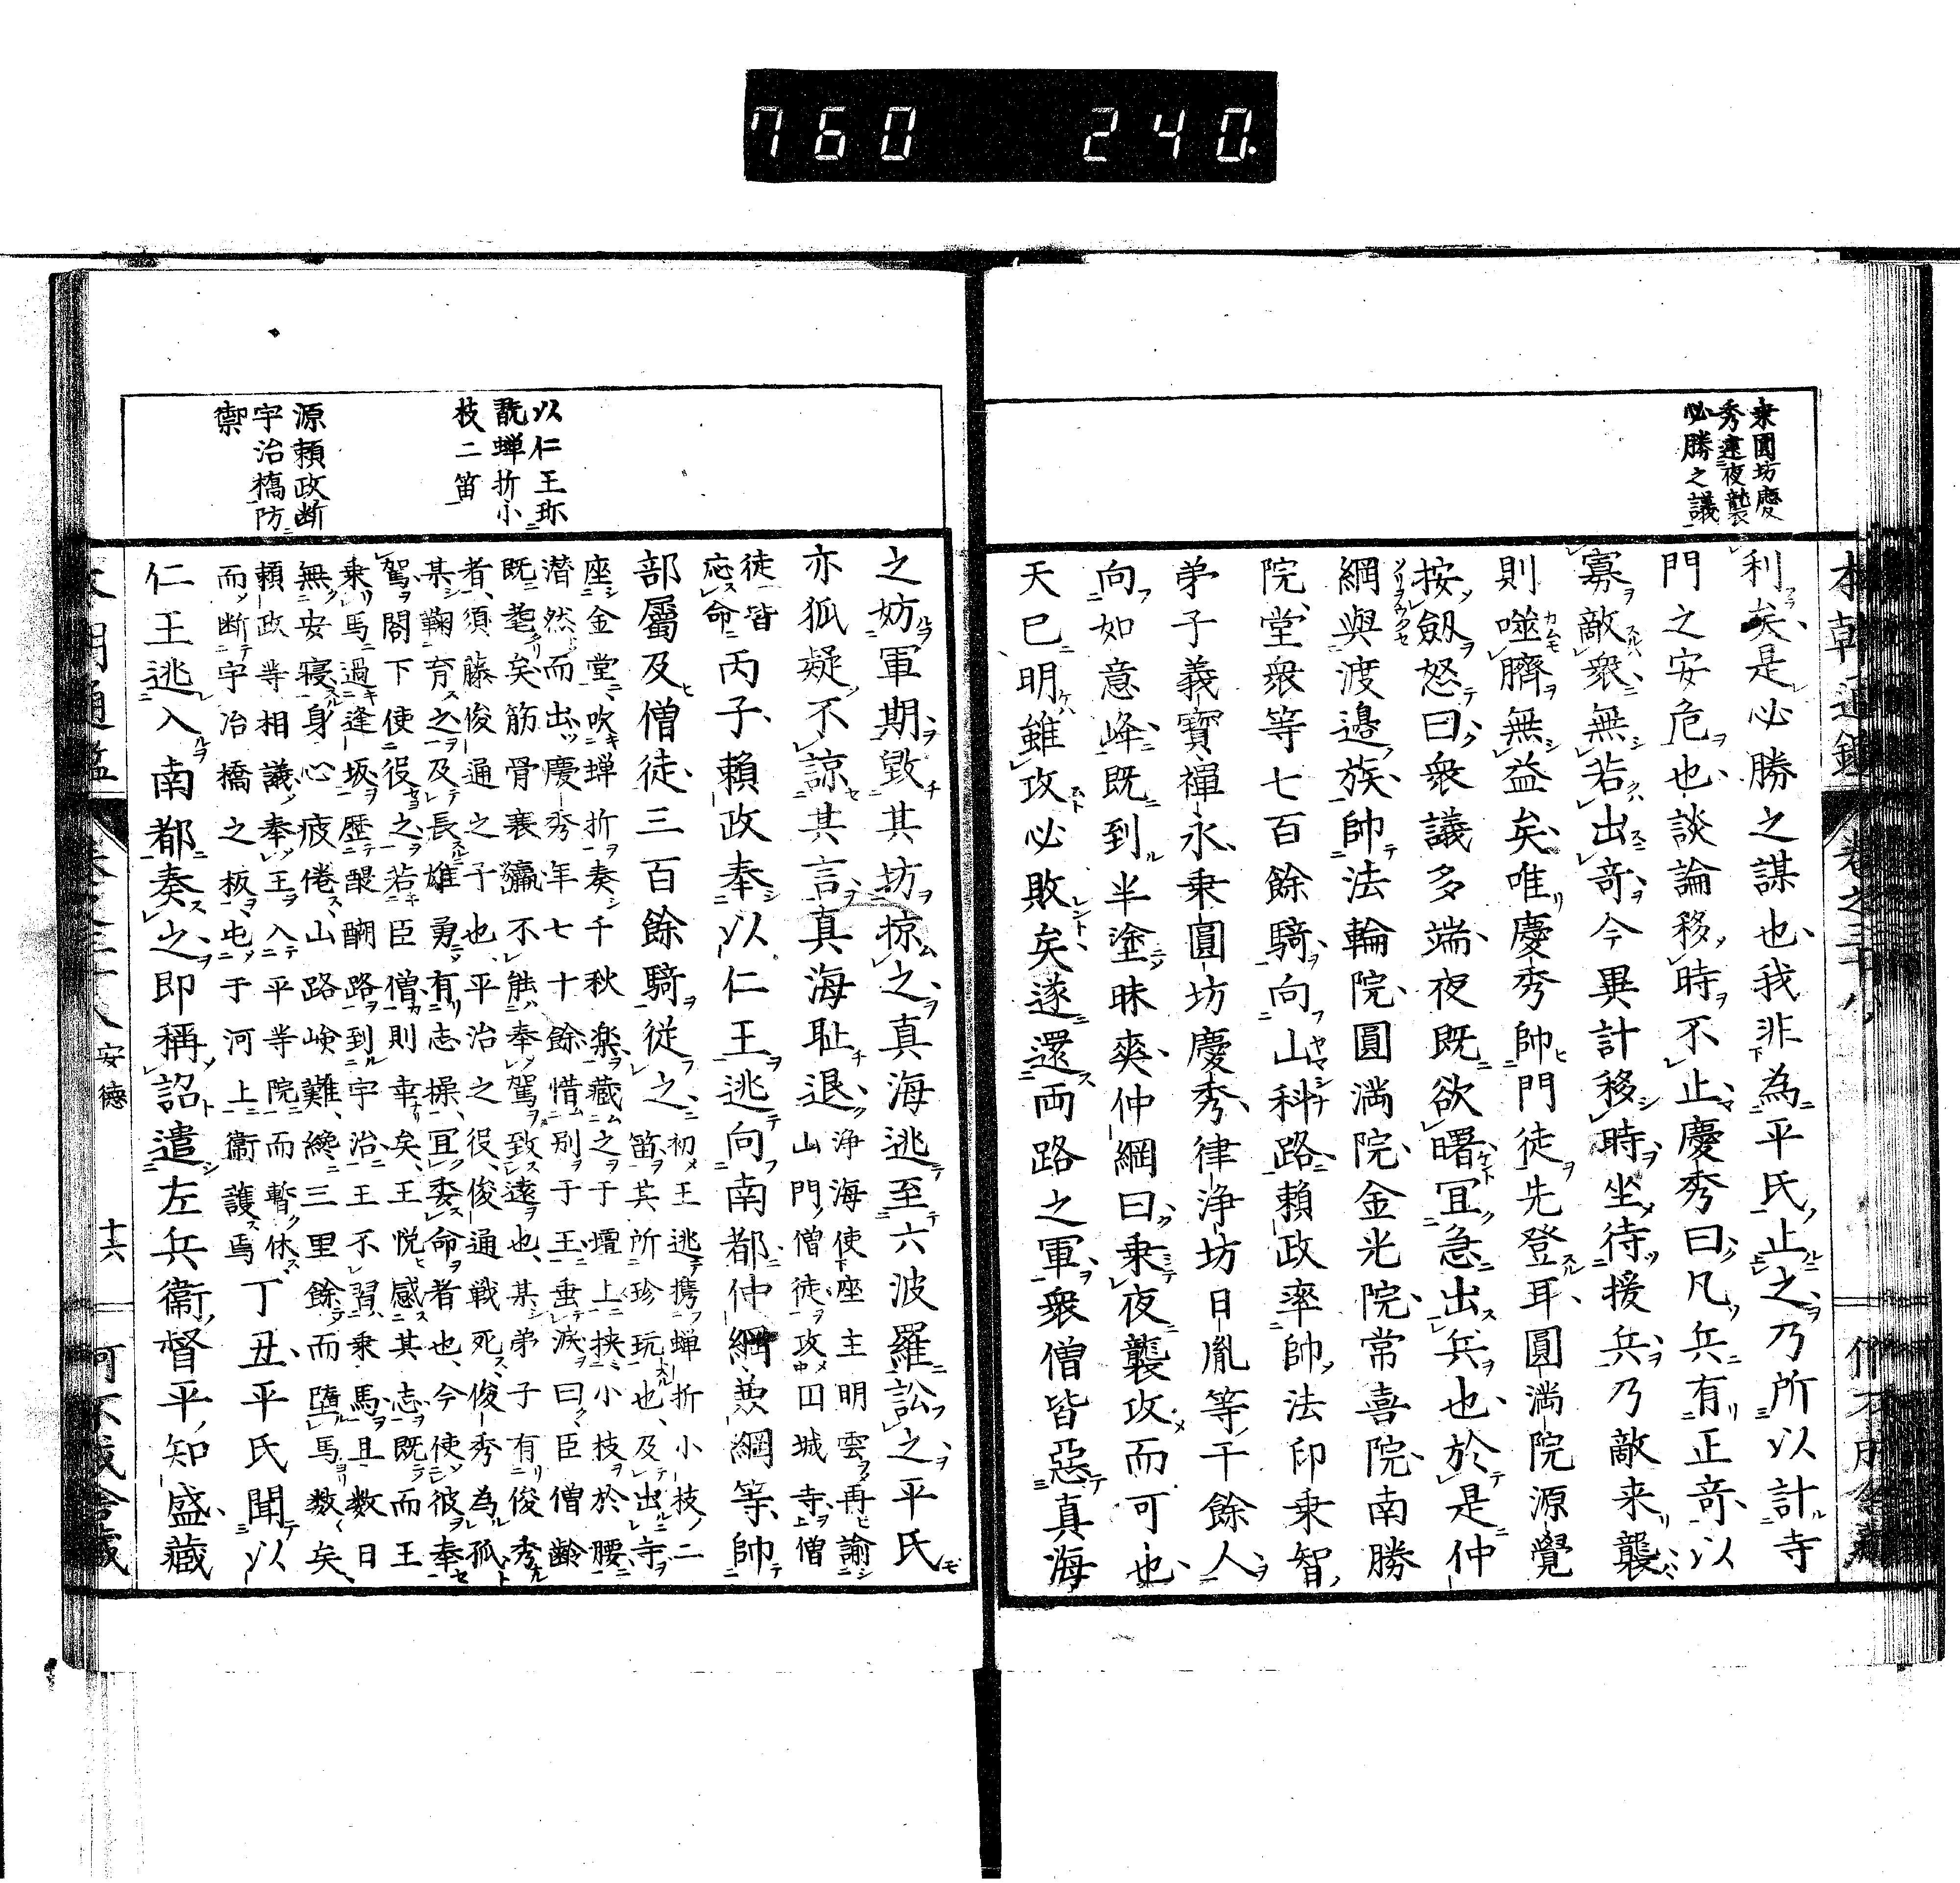 760 240.
乗圓坊慶
秀建夜襲
必勝之議
利矣是必勝之謀也我非為平氏止之乃所以計寺
門之安危也談論移時不止慶秀曰凡兵有正竒以
寡敵衆無若出竒今異計移時坐待援兵乃敵来襲
則噬臍無益矣唯慶秀帥門徒先登耳圓満院源覺
按劔怒曰衆議多端夜既欲曙冝急出兵也於是仲
綱與渡邉族帥法輪院圓満院金光院常喜院南勝
院堂衆等七百餘騎向山科路頼政率帥法印乗智
弟子義寶禪永乗圓坊慶秀律浄坊日胤等千餘人
向如意峰既到半塗昧爽仲綱曰乗夜襲攻而可也
天已明雖攻必敗矣遂還両路之軍衆僧皆惡真海
以仁王珎
翫蝉折小
枝二笛
源頼政断
宇治橋防
禦
之妨軍期毀其坊掠之真海逃至六波羅訟之平氏
亦狐疑不諒其言真海耻退浄海使座主明雲再諭
山門僧徒攻囚城寺僧
徒皆
応命丙子頼政奉以仁王逃向南都仲綱兼綱等帥
部屬及僧徒三百餘騎従之初王逃携蝉折小枝二
笛其所珍玩也及出寺
座金堂吹蝉折奏千秋楽藏之于壇上挟小枝於腰
潜然而出慶秀年七十餘惜別于王垂涙曰臣僧齢
既耄矣筋骨衰羸不能奉駕致遠也某弟子有俊秀
者須藤俊通之子也平治之役俊通戦死俊秀為孤
某鞠育之及長雄勇有志操冝委命者也今使彼奉
駕閤下使役之若臣僧則幸矣王悦感其志既而王
乗馬過逢坂歴醍醐路到宇治王不習乗馬且数日
無安寝身心疲倦山路嶮難纔三里餘而墮馬数矣
頼政等相議奉王入平等院而暫休
而断宇治橋之板屯于河上衞護焉丁丑平氏聞以
仁王逃入南都奏之即稱詔遣左兵衞督平知盛藏
安徳
十六